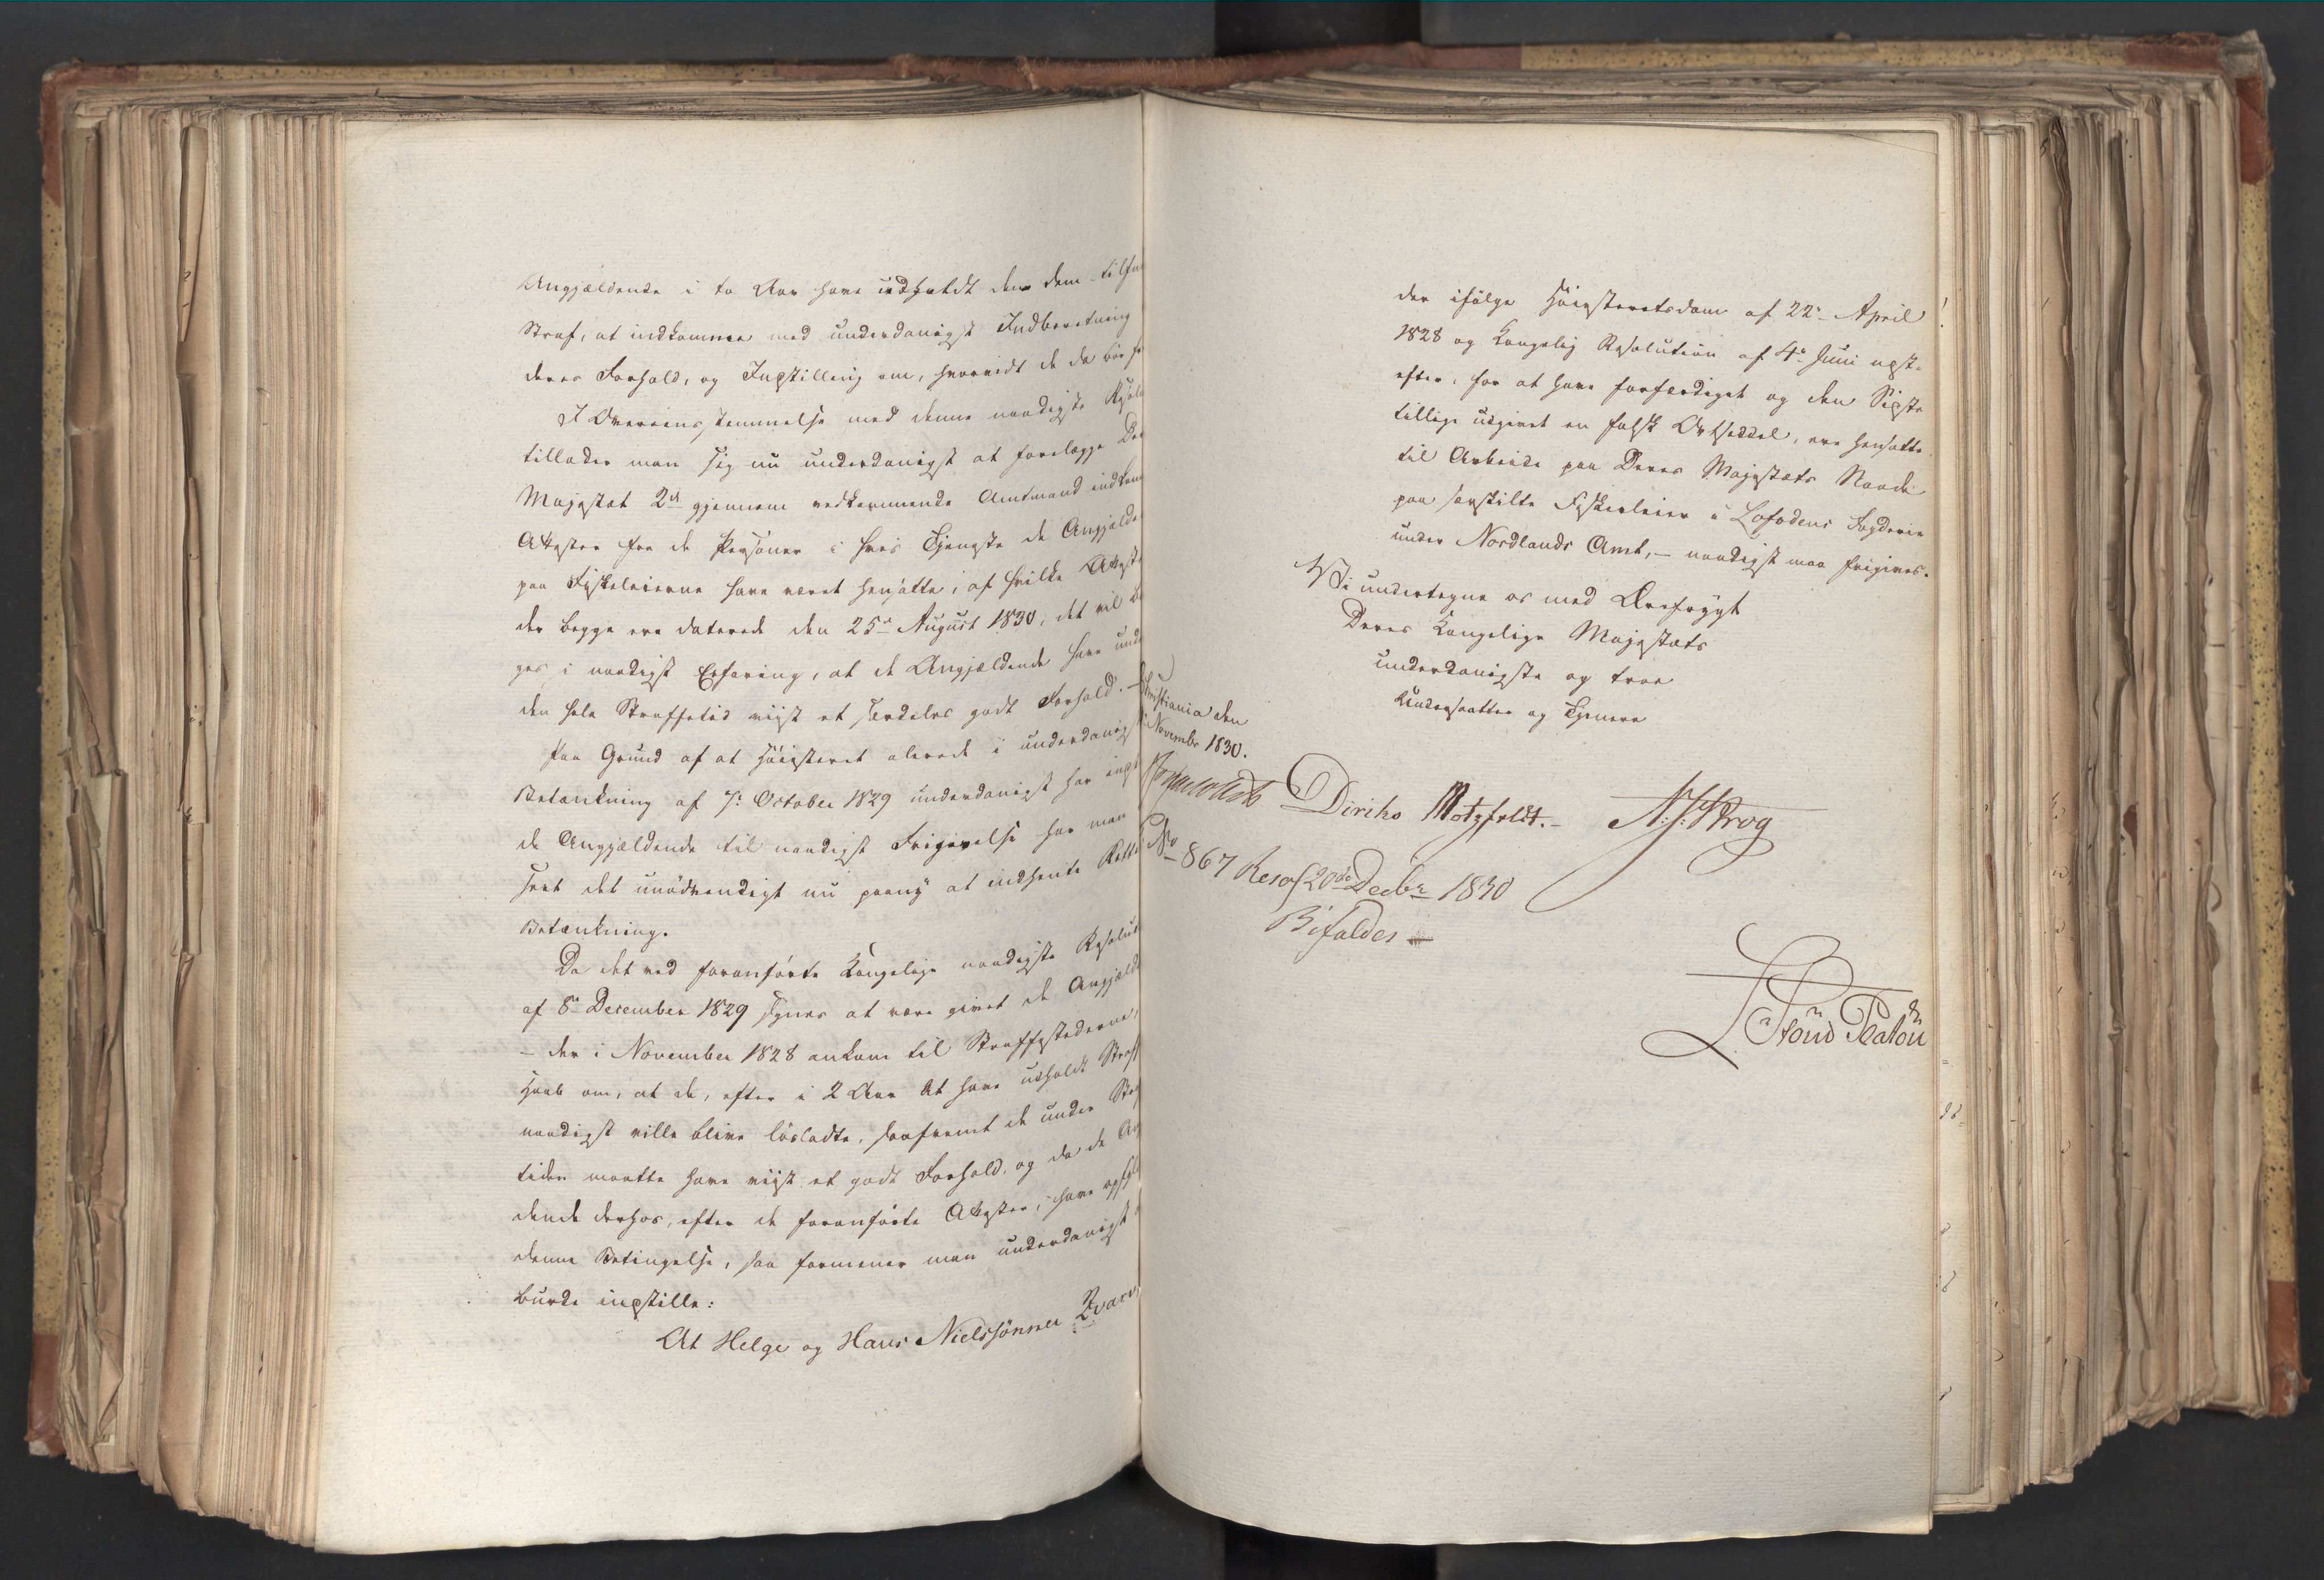 Angjældende i to Aar have udholdt den dem
Straf, at indkomme med underdanigst Indberetning
deres Forhold, og Indstilling om, hvorvidt de da bør
I Overeensstemmelse med denne naadigste
tillader man sig nu underdanigst at forelægge
Majestæt 2de gjennem vedkommende Amtmand
Attester fra de Personer i hvis Tjeneste de
paa Fiskeleierne have været hensatte, af hvilke
der begge ere daterede den 25de August 1830, det vil
ges i naadigst Erfaring, at de Angjældende have
den hele Straffetid viist et særdeles godt Forhold. -
Paa Grund af at Høiesteret allerede i
Betænkning af 7de October 1829 underdanigst har
de Angjældende til naadigst Frigivelse har man
seet det unødvendigt nu paany at indhente
Betænkning.
Da det ved foranførte Kongelige naadigste
af 8de December 1829 synes at være givet de
- der i November 1828 ankom til Straffestederne,
Haab om, at de, efter i 2 Aar at have udholdt
naadigst ville blive løsladte, saafremt de under
tiden maatte have viist et godt Forhold, og da de
dende derhos, efter de foranførte Attester, have
denne Betingelse, saa formener man underdanigst
burde indstille:
At Helge og Hans Nielssønner
der ifølge Høiesteretsdom af 22de April
1828 og Kongelig Resolution af 4de Juni næst-
efter, for at have forfærdiget og den Sidste
tillige udgivet en falsk Ortseddel, ere hensatte
til Arbeide paa Deres Majestæts Naade
paa særskilte Fiskerleier i Lofodens Fogderie
under Nordlands Amt, - naadigst maa frigives.
Vi undertegne os med Ærefrygt
Deres Kongelige Majestæts
underdanigste og troe
Undersaatter og Tjenere
Christiania den
Novembr 1830.
Diriks Motzfeldt. - N:J:Krog
No 867 Resol 20de Decbr 1830
Bifaldes